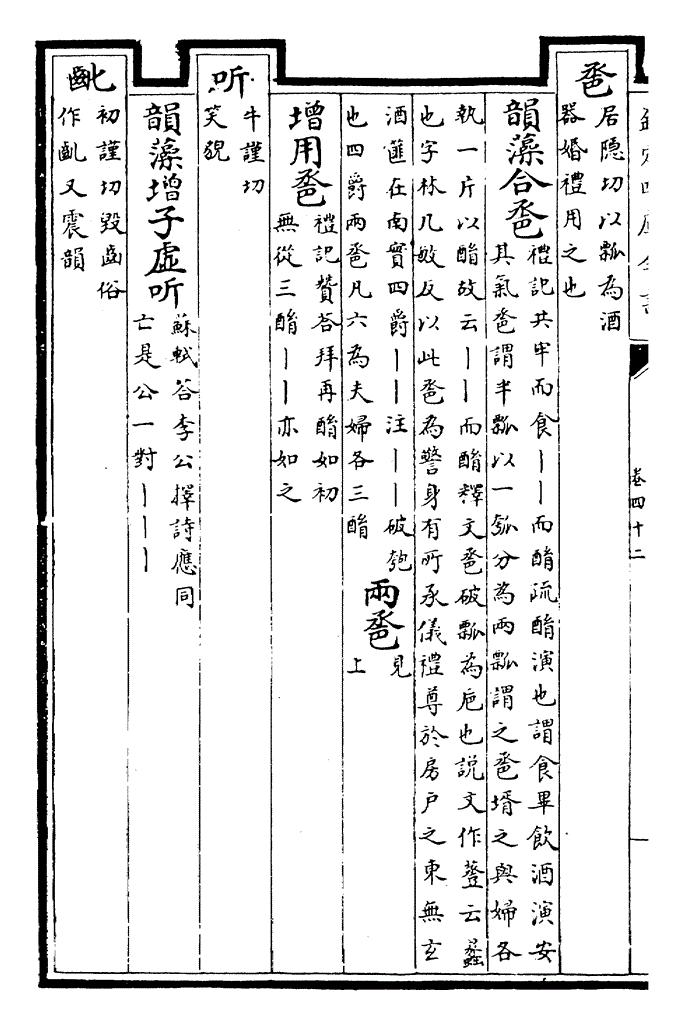 欽定四庫全書
卷四十二
卺
居隐切以瓢為酒
器婚禮用之也
韻藻合卺
禮記共牢而食丨丨而酳疏酳演也謂食畢飲酒演安
其氣卺謂半瓢以一瓠分為兩瓢謂之卺壻之與婦各
執一片以酳故云丨丨而酳釋文卺破瓢為巵也説文作䔖云蠡
也字林几敏反以此卺為警身有所承儀禮尊於房户之東無玄
酒篚在南實四爵丨丨注丨丨破匏
也四爵兩卺凡六為夫婦各三酳
兩卺
見
上
增用卺
禮記贊荅拜再酳如初
無從三酳丨丨亦如之
听
牛謹切
笑貌
韻藻增子虛听
蘇軾荅李公擇詩應同
亡是公一對丨丨丨
齔
初謹切毀齒俗
作齓又震韻